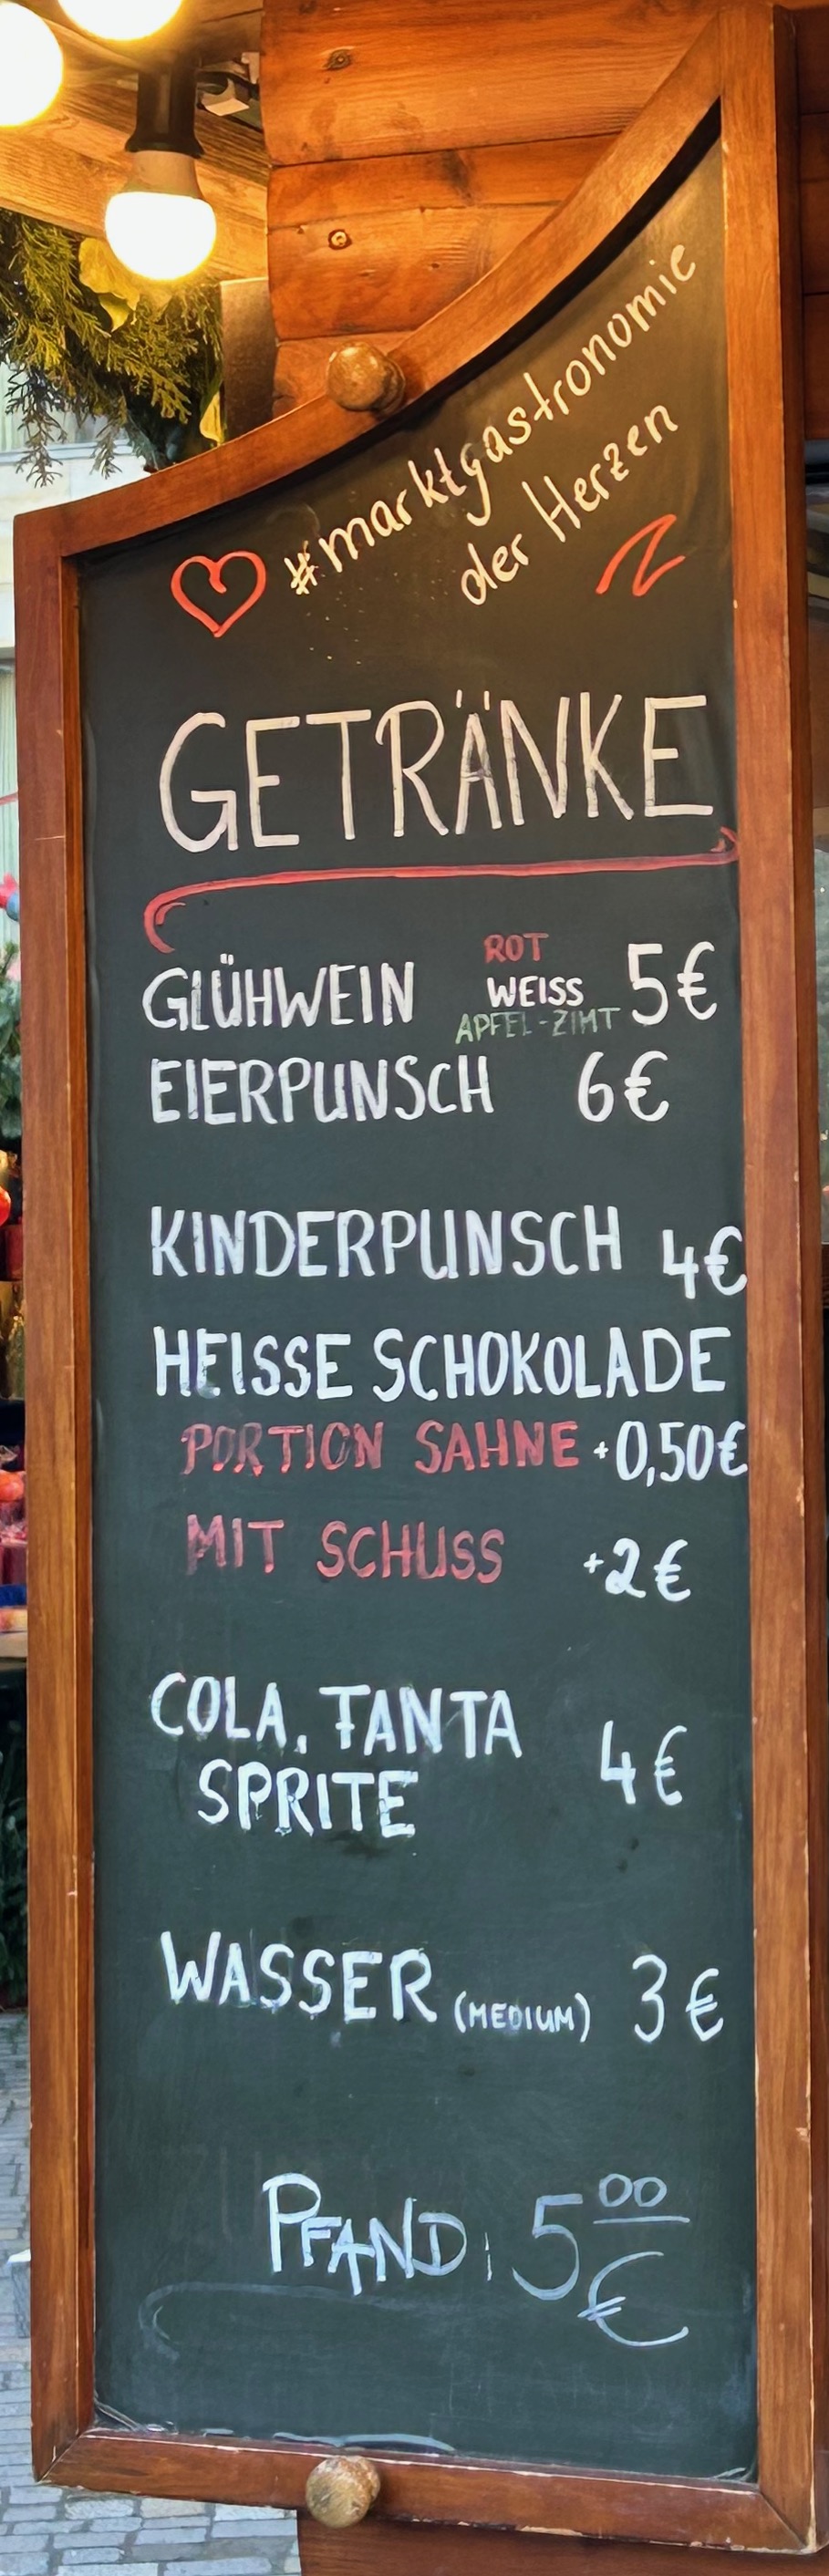 #marktgastronomie
der Herzen
GETRÄNKE
GLÜHWEIN ROT WEISS APFEL-ZIMT 5€
EIERPUNSCH 6€
KINDERPUNSCH 4€
HEISSE SCHOKOLADE
PORTION SAHNE +0,50€
MIT SCHUSS +2€
COLA, TANTA
SPRITE 4€
WASSER (MEDIUM) 3€
PFAND: 5 00 €